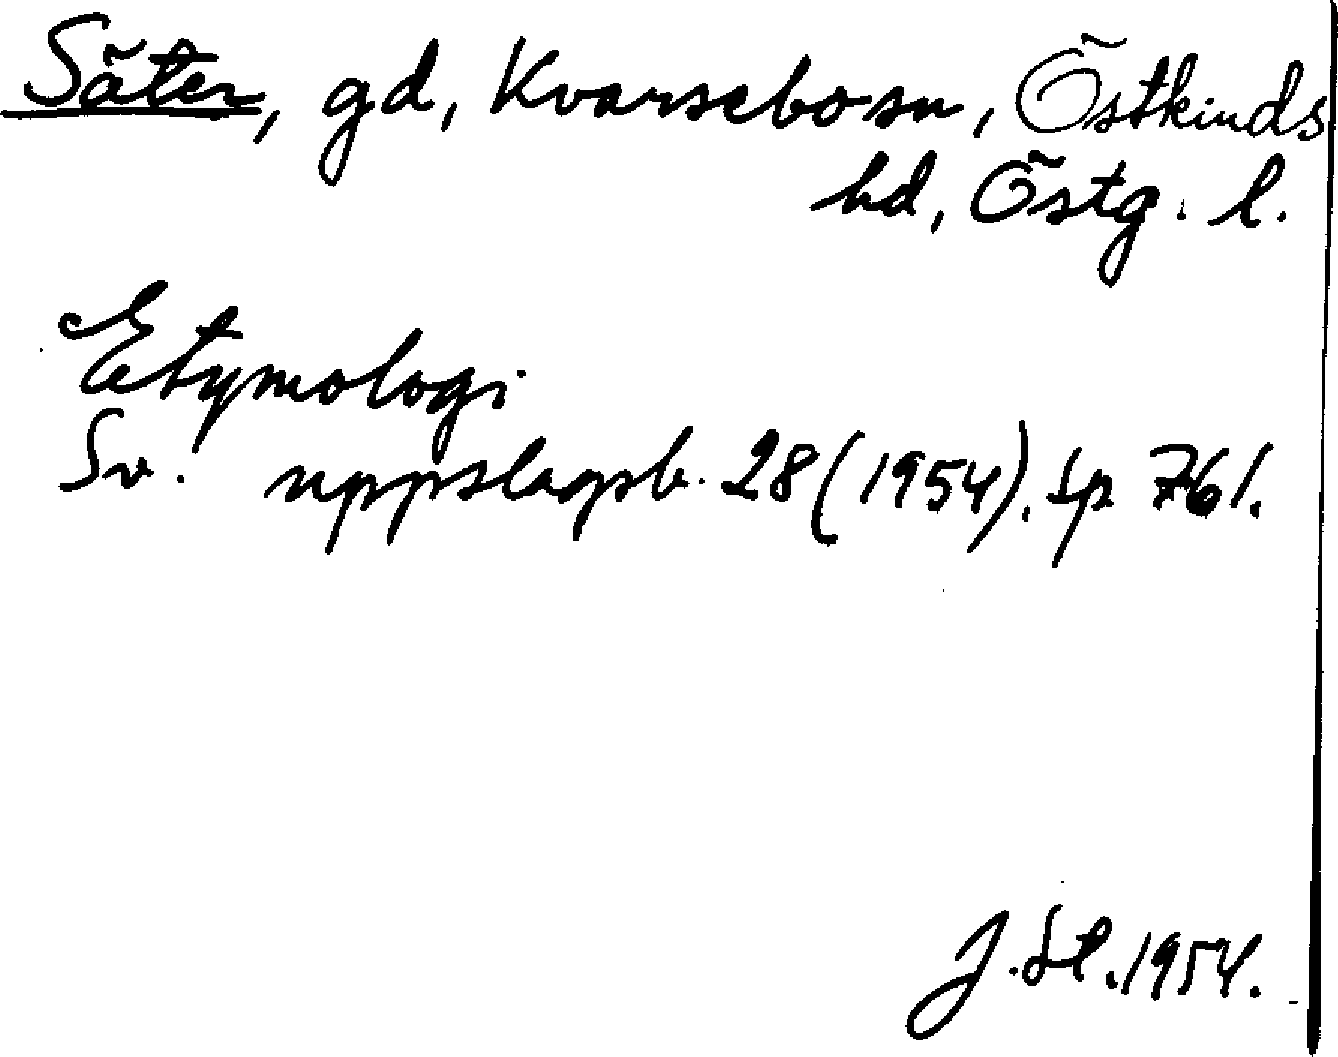 Säter, gd, Kvarsebo sn, Östkinds
hd, Östg. l.
Etymologi
Sv. uppslagsb. 28 (1954). sp 761.
J. St. 1954.